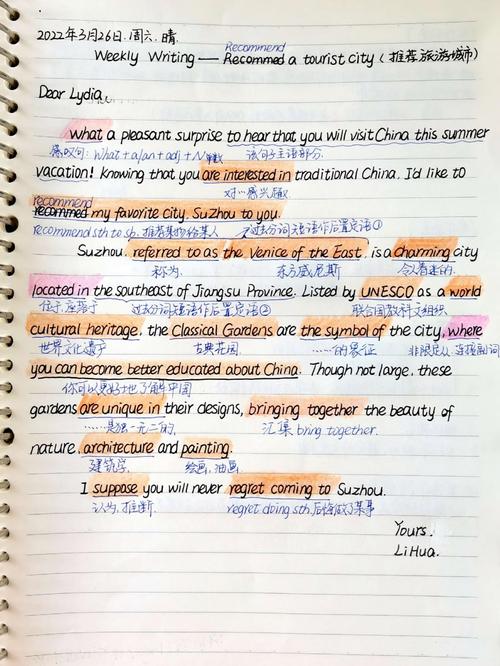 2022年3月26日.周六.晴.
Recommend
Weekly Writing — Recommed a tourist city (推荐旅游城市)
Dear Lydia,
What a pleasant surprise to hear that you will visit China this summer
感叹句: What + a/an + adj + N单数 该句子主语部分.
vacation! Knowing that you are interested in traditional China. I'd like to
对…感兴趣.
recommend
recommed my favorite city, Suzhou to you.
recommend sth to sb. 推荐某物给某人 过去分词短语作后置定语①
Suzhou, referred to as the Venice of the East, is a charming city
称为. 东方威尼斯 令人着迷的.
located in the southeast of Jiangsu Province. Listed by UNESCO as a world
位于,座落于 过去分词短语作后置定语② 联合国教科文组织.
cultural heritage, the Classical Gardens are the symbol of the city, where
世界文化遗产 古典花园. ……的象征 非限定从,连接副词
you can become better educated about China. Though not large, these
你可以更好地了解中国
gardens are unique in their designs, bringing together the beauty of
……是独一无二的. 汇集 bring together.
nature, architecture and painting.
建筑学. 绘画,油画.
I suppose you will never regret coming to Suzhou.
认为,推断. regret doing sth. 后悔做了某事
Yours,
Li Hua.